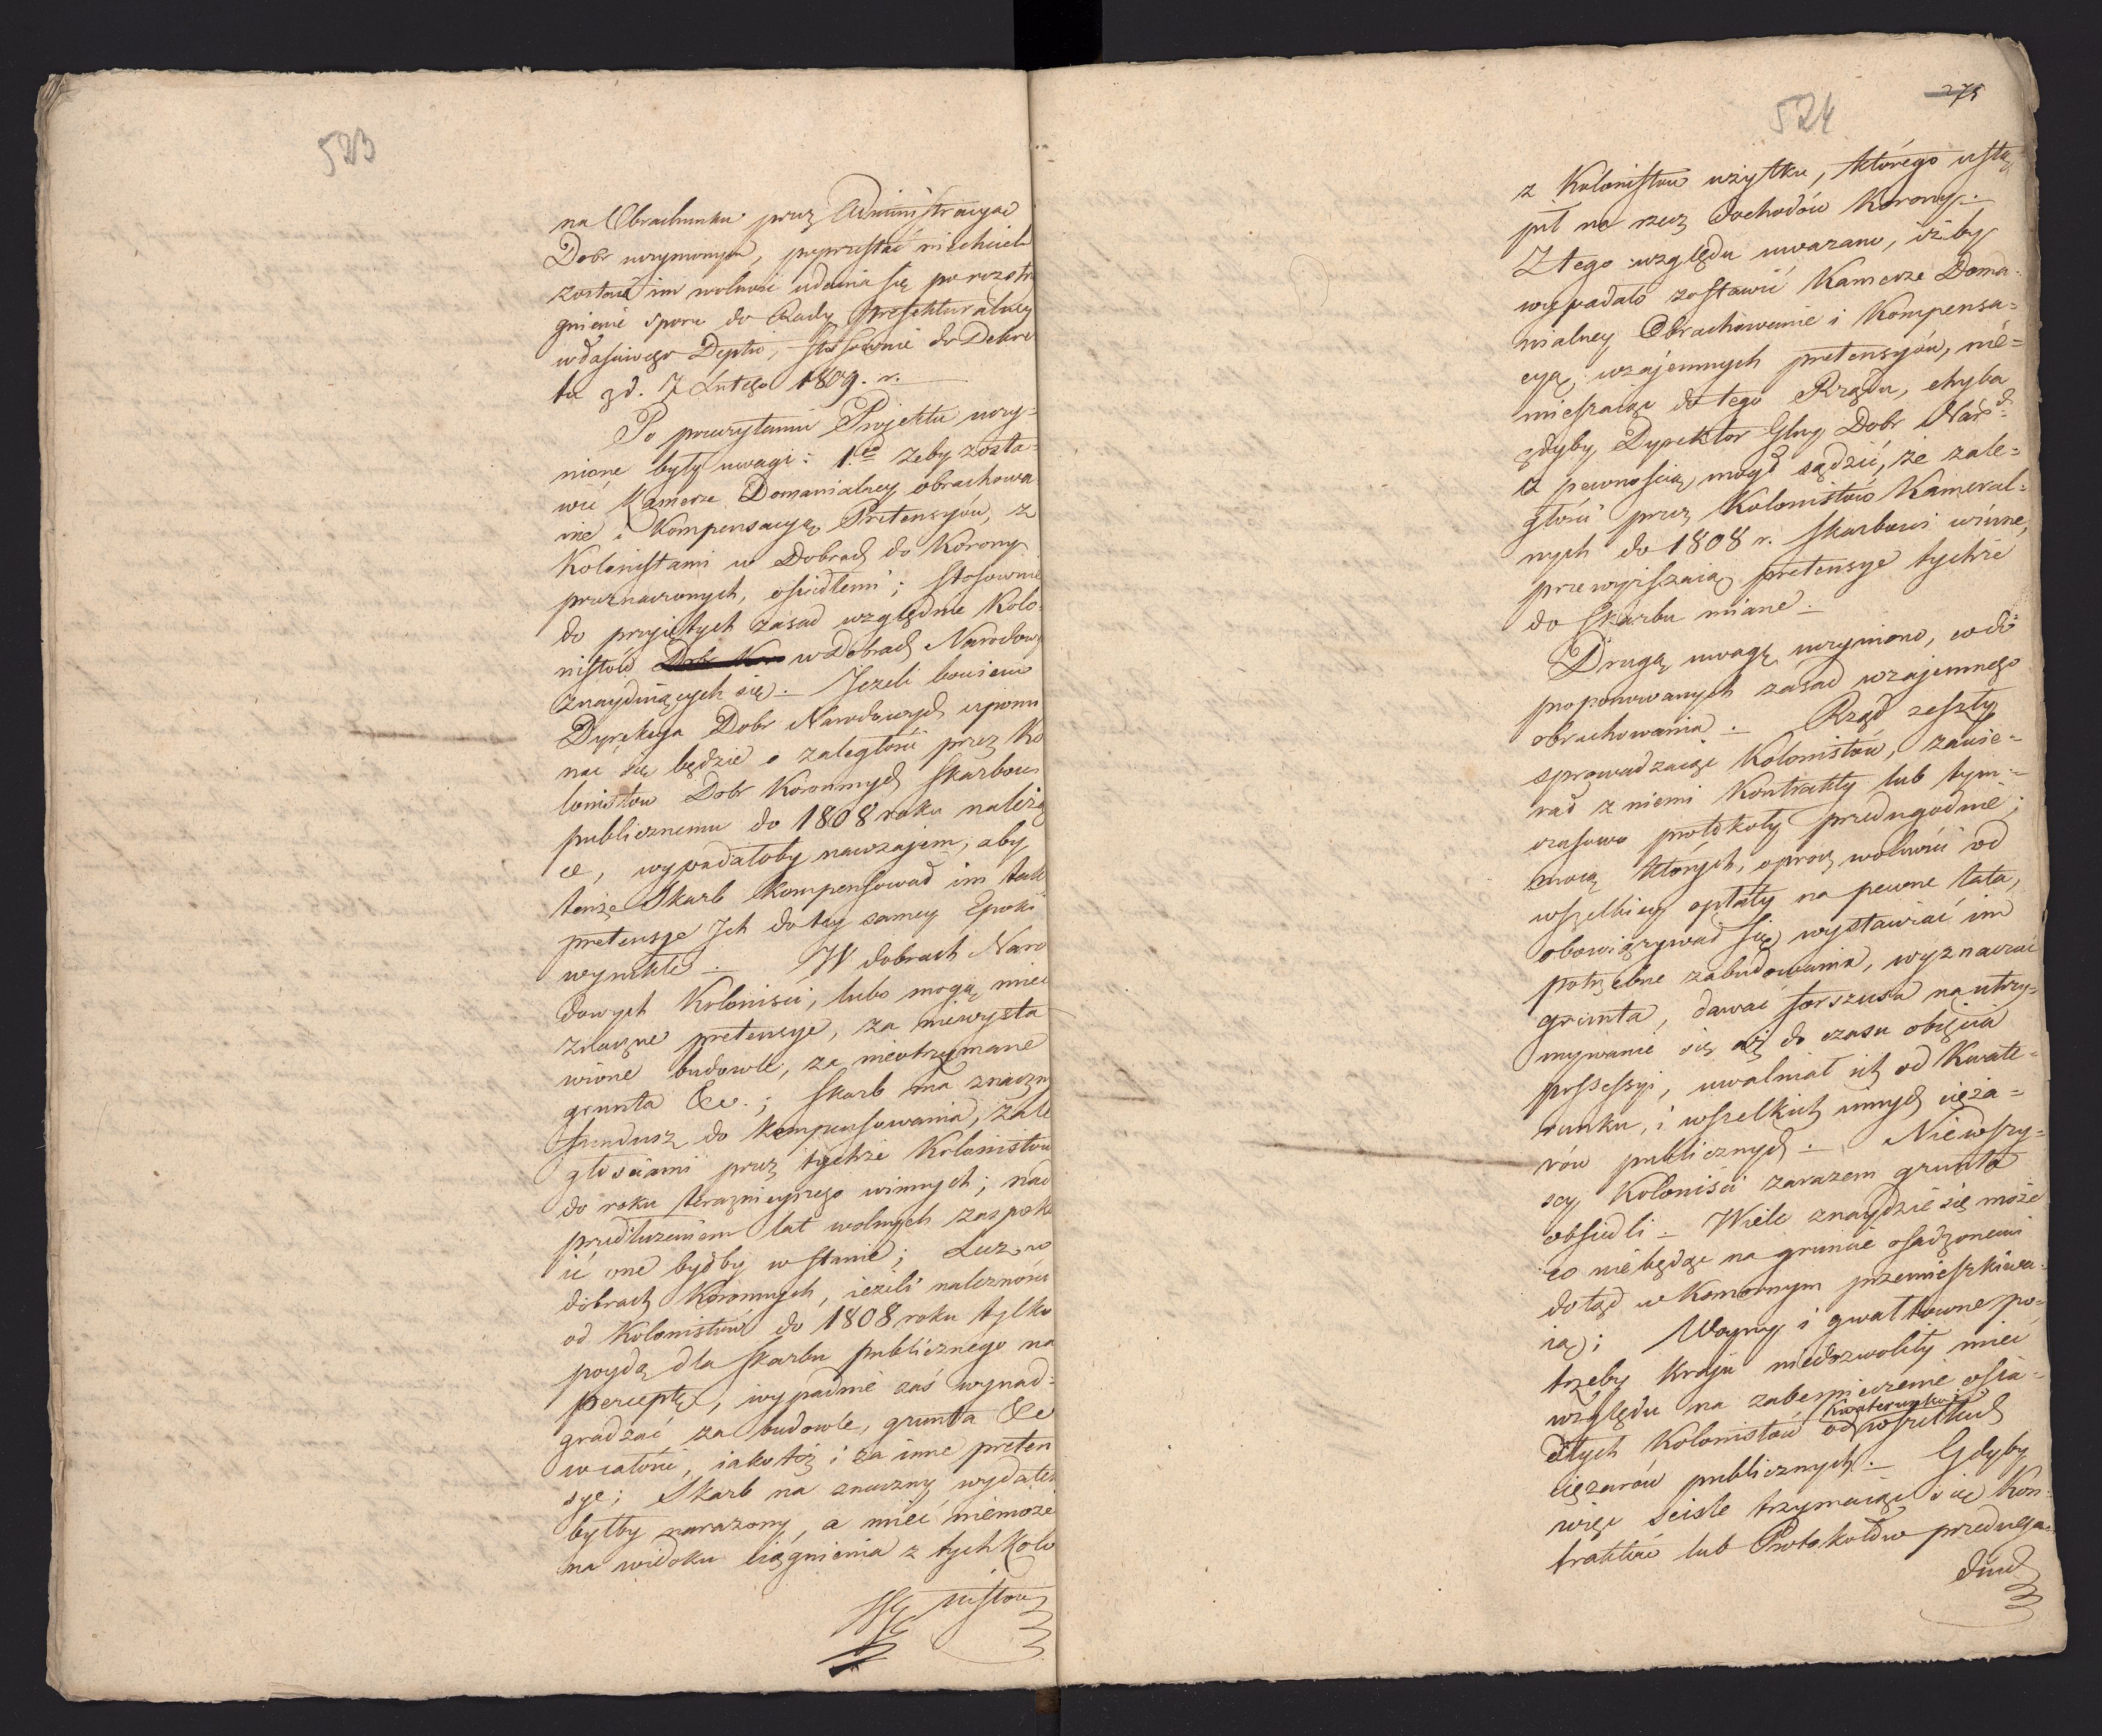 523
na Obrachunku przez Administracyą
Dobr uczynionym, poprzestać niechcieli
zostawia im wolność udania się po rozstrzy
gnienie sporu do Rady Prefekturalney
właściwego Deptu, stosownie do Dekre
tu z d. 7 Lutego 1809. r.
Po przeczytaniu Projektu uczy=
nione były uwagi: 1mo żeby zosta=
wić Kamerze Domanialney obrachowa
nie i Kompensacyą Pretensyów, z
Kolonistami w Dobrach do Korony
przeznaczonych, osiedlemi; stosownie
do przyiętych zasad względnie Kolo=
nistów w Dobrach Narodowych
znayduiących się. Jeżeli bowiem
Dyrekcya Dobr Narodowych upomi
nać się będzie o zaległości przez Ko
lonistow Dobr Koronnych Skarbowi
publicznemu do 1808 roku należą
ce, wypadałoby nawzajem, aby
tenże Skarb Kompensował im także
pretensye Ich do tey samey Epoki
wynikłe. W dobrach Naro
dowych Koloniści, lubo mogą mieć
znaczne pretensye, za niewysta
wione budowle, za nieotrzymane
grunta &c.; Skarb ma znaczny
fundusz do kompensowania, zale
głościami przez tychże Kolonistow
do roku teraznieyszego winnych; nad
przedłużeniem lat wolnych zaspoko
ić one byłby w stanie; Lecz w
dobrach Koronnych, ieżeli należności
od Kolonistów do 1808 roku tylko
poydą dla Skarbu publicznego na
perceptę, wypadnie zaś wynad=
gradzać za budowle, grunta &c
w całości, iakotéż i za inne preten
sye; Skarb na znaczny wydatek
byłby narażony, a mieć niemoże
na widoku ciągnienia z tych Kolo
nistow
275
524
z Kolonistow użytku, którego ustą
pił na rzecz dochodów Korony.
Z tego względu uważano, iżby
wypadało zostawić Kamerze Doma=
nialney Obrachowanie i Kompensa=
cyą, wzájemnych pretensyów, nie=
mieszaiąc do tego Rządu, chyba
gdyby Dyrektor Glny Dobr Nard:
z pewnością mogł sądzić, że zale=
głości przez Kolonistów Kameral=
nych do 1808 r. Skarbowi winne,
przewyższaią pretensye tychże
do Skarbu miane.
Drugą uwagę uczyniono, co do
proponowanych zasad wzajemnego
obrachowania. Rząd zeszły
sprowadzaiąc Kolonistów, zawie=
rał z niemi Kontrakty lub tym=
czasowo protokoły przedugodnie;
mocą których, oprocz wolności od
wszelkiey opłaty na pewne lata,
obowiązywał się wystawiać im
potrzebne zabudowania, wyznaczać
grunta, dawać forszusa na utrzy=
mywanie się aż do czasu obięcia
possessyi, uwalniał ich od Kwate=
runku, i wszelkich innych cięża=
rów publicznych. Niewszy=
scy Koloniści zarazem grunta
obsiedli. Wiele znaydzie się może
co niebędąc na gruncie osadzonemi
dotąd w Komornym przemieszkiwa=
ią; Woyny i gwałtowne po=
trzeby Kraju niedozwoliły mieć
względu na zabezpieczenie osia=
dłych Kolonistów od Kwaterunku i wszelkich
ciężarów publicznych. Gdyby
więc ściśle trzymaiąc się Kon=
traktów lub Protokołów przedugo=
dnich